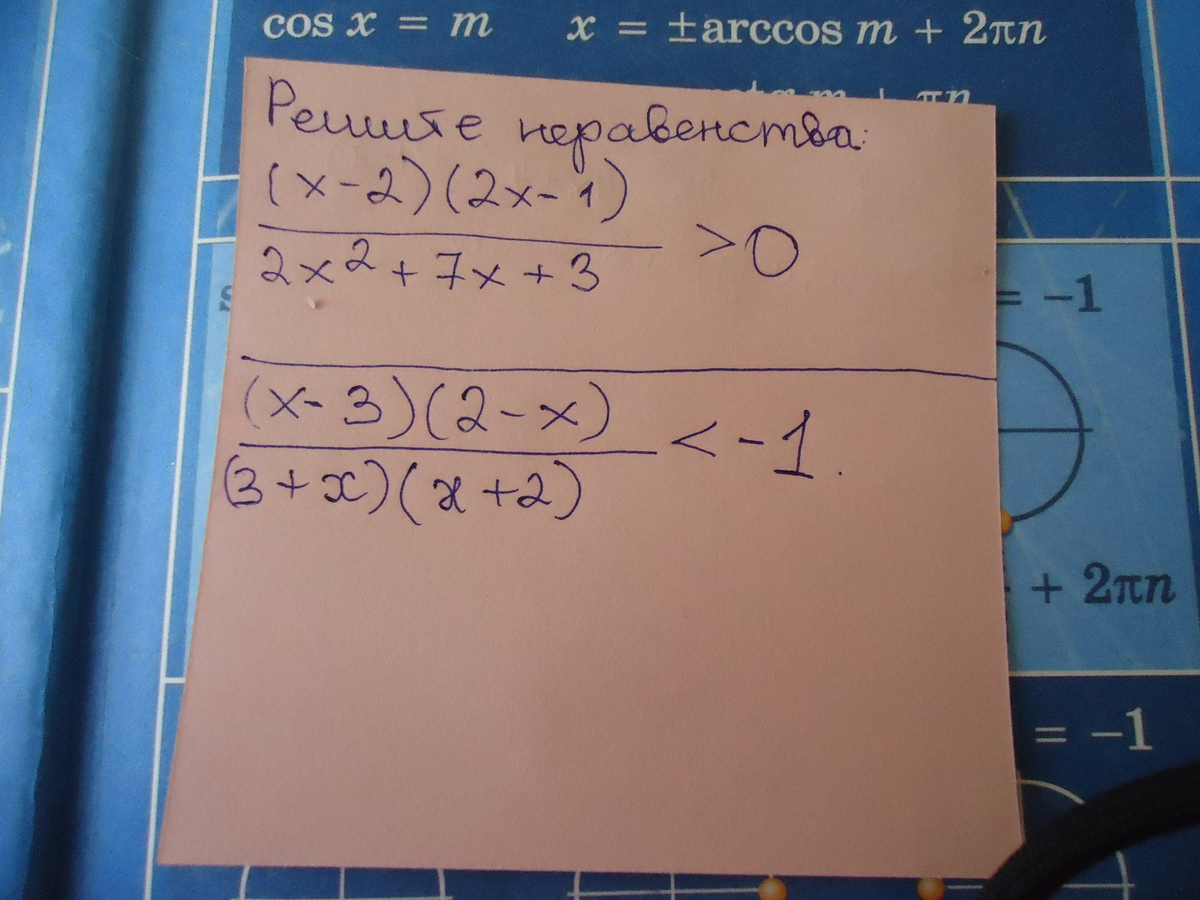 cos x = m x = ±arccos m + 2πn
Решите неравенства:
(x-2)(2x-1)
2x² + 7x + 3
>0
= -1
(x-3)(2-x)
(3+x)(x+2)
< -1.
+ 2πn
= -1